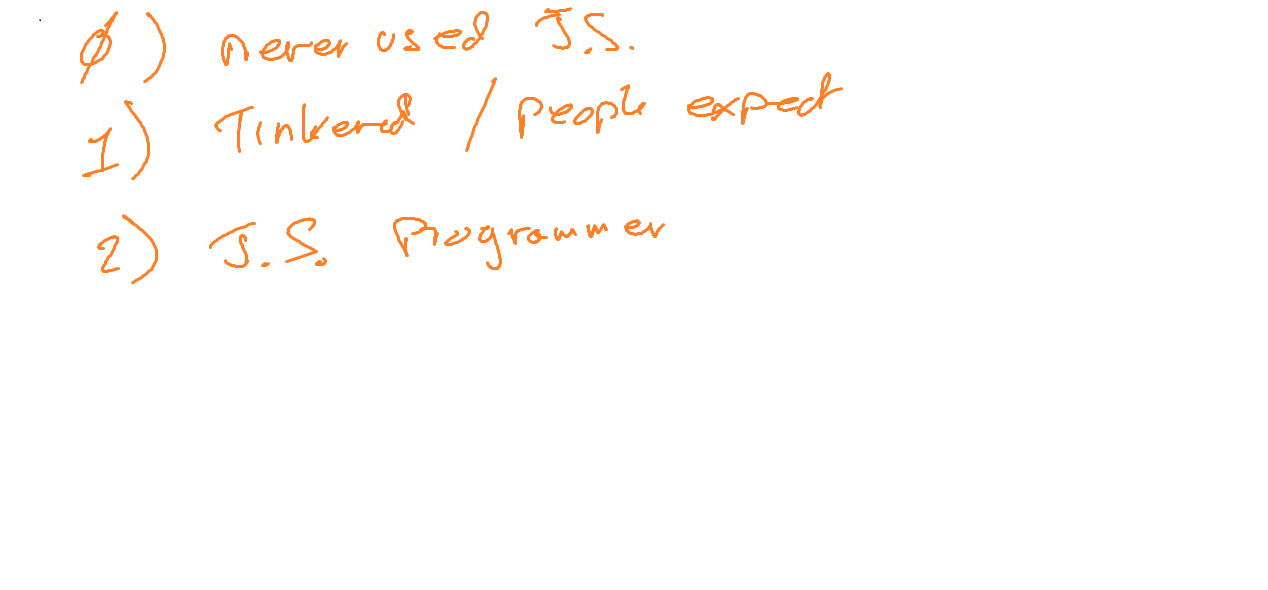 0) never used J.S.
1) Tinkered / people expect
2) J.S. Programmer